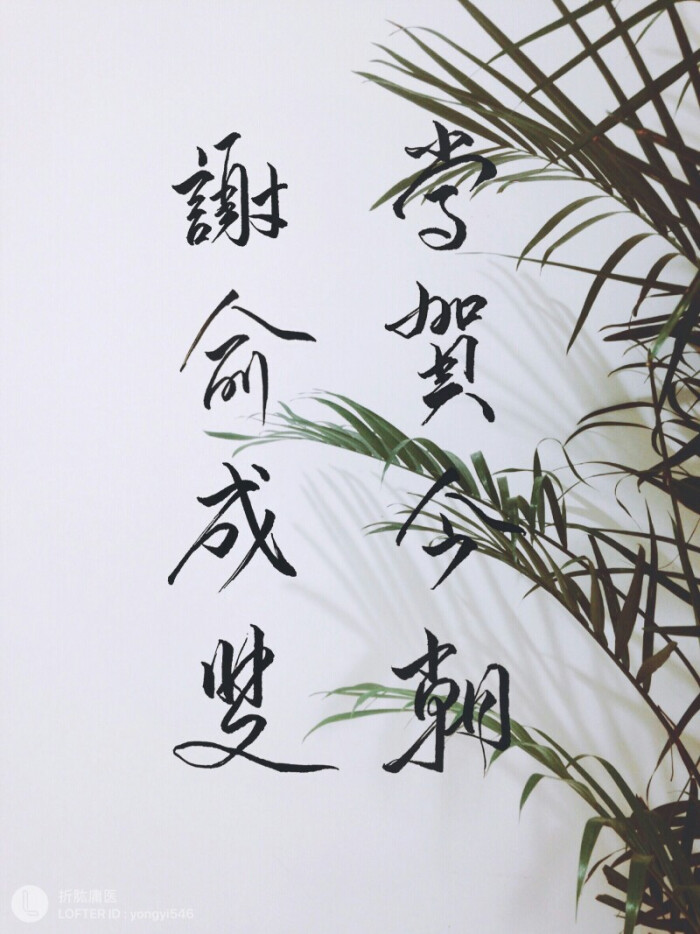 當賀今朝
謝俞成雙
折肱庸医
LOFTER ID : yongyi546